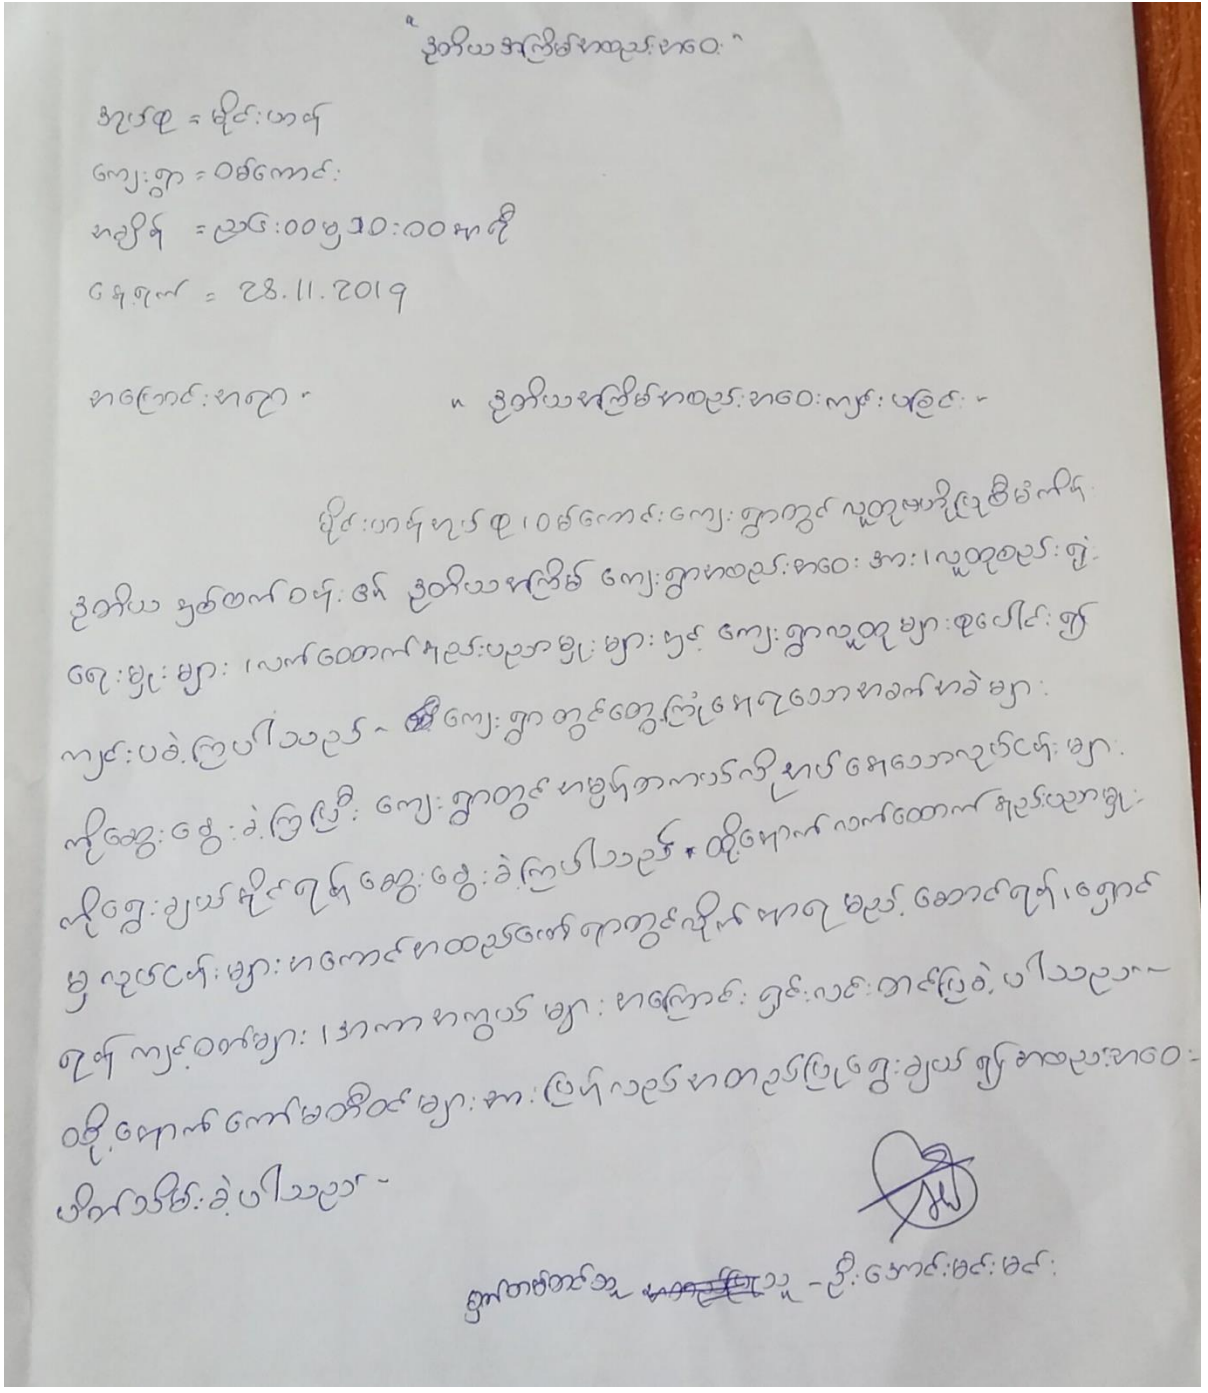 "ဒုတိယအကြိမ်အစည်းအဝေး"
အုပ်စု = မိုင်းဟန်
ကျေးရွာ = ဝမ်ကောင်း
အချိန် = ည၆:၀၀မှ ၁၀:၀၀နာရီ
နေ့ရက် = 28.11.2019
အကြောင်းအရာ - " ဒုတိယအကြိမ်အစည်းအဝေးကျင်းပခြင်း -
မိုင်းဟန်အုပ်စု၊ ဝမ်ကောင်းကျေးရွာတွင် လူထုဗဟိုပြုစီမံကိန်း
ဒုတိယ နှစ်ပတ်ဝန်း၏ ဒုတိယအကြိမ် ကျေးရွာအစည်းအဝေး အား၊ လူထုစည်းရုံး
ရေးမှုးများ၊ လက်ထောက်နည်းပညာမှုးများ နှင့် ကျေးရွာလူထု များစုပေါင်း၍
ကျင်းပခဲ့ကြပါသည် - ကျေးရွာ တွင်တွေ့ကြုံနေရသောအခက်အခဲ များ
ကိုဆွေးနွေးခဲ့ကြပြီး ကျေးရွာတွင် အမှန်တကယ်လိုအပ်နေသောလုပ်ငန်းများ
ကိုရွေးချယ်နိုင်ရန် ဆွေးနွေးခဲ့ကြပါသည်။ ထို့နောက် လက်ထောက် နည်းပညာမှုး
မှ လုပ်ငန်းများ အကောင်အထည်ဖော်ရာတွင်လိုက်နာရမည့် ဆောင်ရန်၊ ရှောင်
ရန် ကျင့်ဝတ်များ၊ အကာအကွယ် များ အကြောင်း ရှင်းလင်းတင်ပြခဲ့ပါသည် -
ထို့နောက် ကော်မတီဝင် များအား ပြန်လည်အတည်ပြုရွေးချယ်၍ အစည်းအဝေး
ပိတ်သိမ်းခဲ့ပါသည် -
မှတ်တမ်းတင်သူ သူ - ဦးအောင်မင်းမင်း